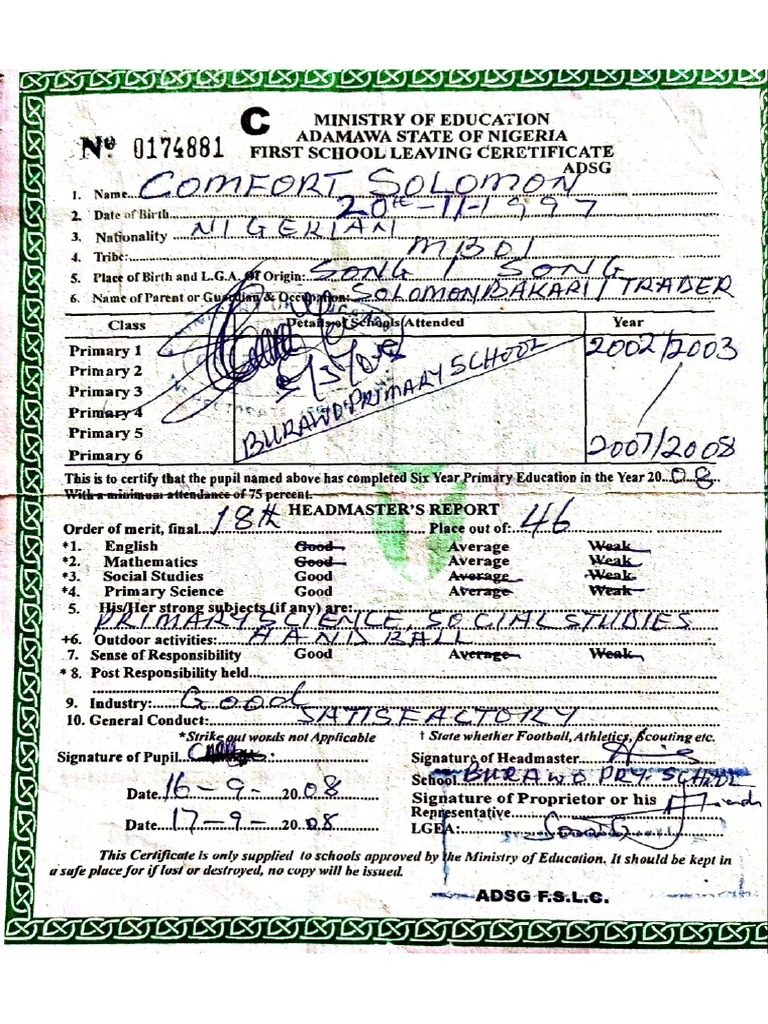 C
MINISTRY OF EDUCATION
ADAMAWA STATE OF NIGERIA
Nº 0174881 FIRST SCHOOL LEAVING CERETIFICATE
ADSG
1. Name COMFORT SOLOMON
2. Date of Birth 20th-11-1997
3. Nationality NIGERIAN
4. Tribe: MBOI
5. Place of Birth and L.G.A. Of Origin: SONG / SONG
6. Name of Parent or Guardian & Occupation: SOLOMON BAKARI / TRADER
Class Details of Schools Attended Year
Primary 1 2002/2003
Primary 2
Primary 3
Primary 4
Primary 5 BURAWO PRIMARY SCHOOL
Primary 6 2007/2008
This is to certify that the pupil named above has completed Six Year Primary Education in the Year 20 08
With a minimum attendance of 75 percent.
HEADMASTER'S REPORT
Order of merit, final 18th Place out of: 46
*1. English Good Average Weak
*2. Mathematics Good Average Weak
*3. Social Studies Good Average Weak
*4. Primary Science Good Average Weak
5. His/Her strong subjects (if any) are:
PRIMARY SCIENCE, SOCIAL STUDIES
+6. Outdoor activities: HAND BALL
7. Sense of Responsibility Good Average Weak
* 8. Post Responsibility held
9. Industry: Good
10. General Conduct: SATISFACTORY
*Strike out words not Applicable † State whether Football, Athletics, Scouting etc.
Signature of Pupil Signature of Headmaster
School BURAWO PRY. SCHOOL
Date 16-9- 20 08 Signature of Proprietor or his
Representative
Date 17-9- 20 08 LGEA:
This Certificate is only supplied to schools approved by the Ministry of Education. It should be kept in
a safe place for if lost or destroyed, no copy will be issued.
ADSG F.S.L.C.